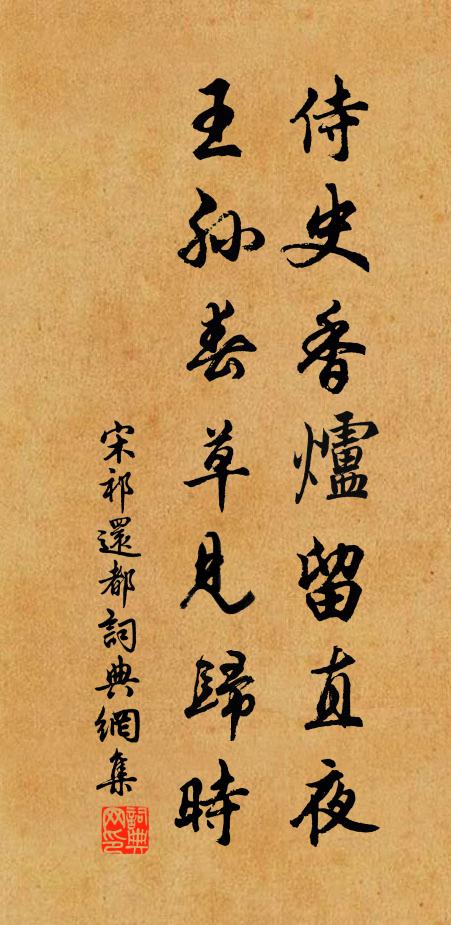 侍史香爐留直夜
王孫春草見歸時
宋祁還都詞典網集
詞典网印